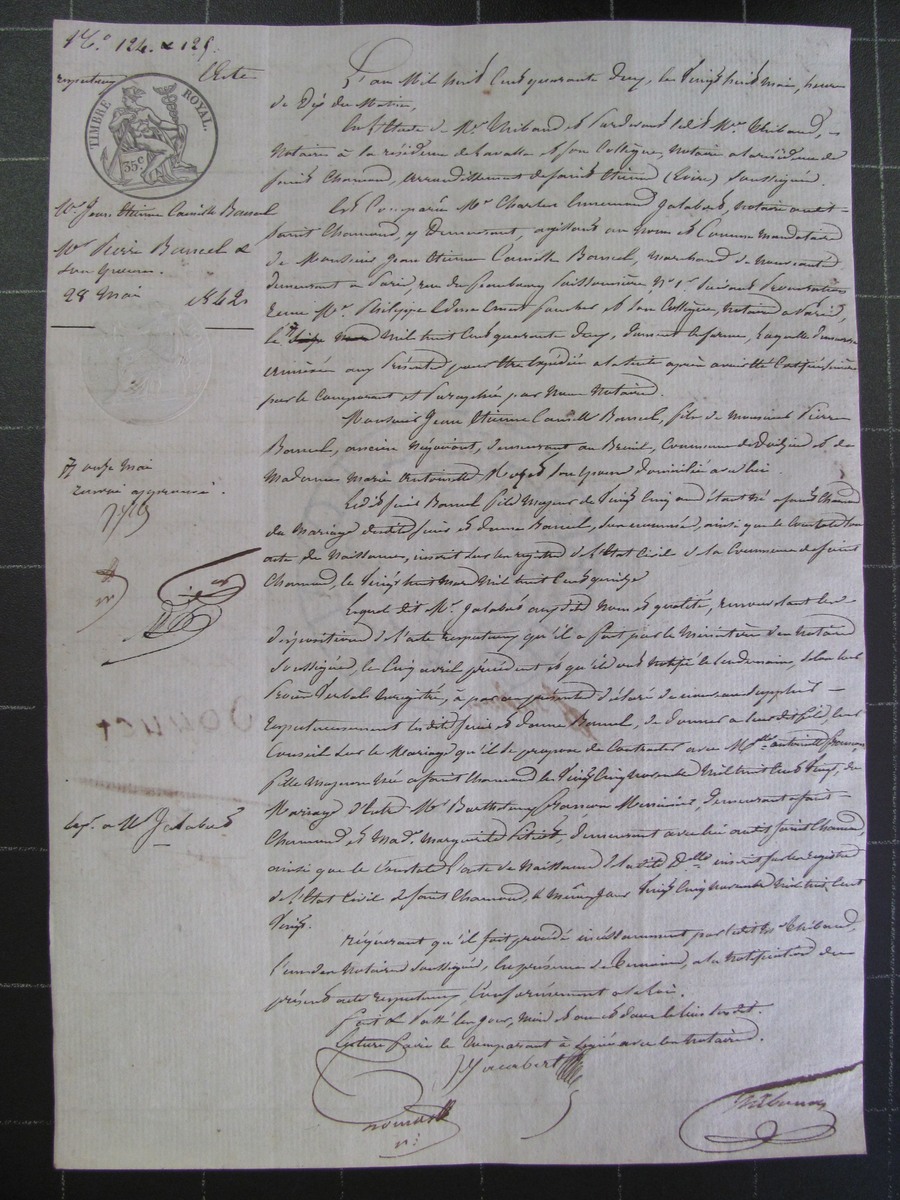 N.° 124. & 125.
Acte
respectueux
TIMBRE ROYAL.
35c
Mr. Jean Etienne Camille Bancel
à
Mr. Pierre Bancel &
son épouse.
28 Mai 1842
onze Mai
renvoi approuvé.
exp. à Mr Jalabert
L'an Mil huit Cent quarante deux, le Vingt huit Mai, heure
de Dix du Matin,
En l'Etude de Me. Thibaud et Pardevant ledit Me. Thibaud,
Notaire à la résidence de Lavalla et son Collègue, Notaire à la résidence de
Saint Chamond, arrondissement de Saint Etienne (Loire) soussignés.
Est Comparu Mr. Charles Jalabert, Notaire audit
Saint Chamond, y demeurant, agissant au nom et Comme Mandataire
de Monsieur Jean Etienne Camille Bancel, Marchand de
demeurant à Paris, rue du faubourg Poissonnière N° 1er suivant Procuration
reçue Me. Philippe et son Collègue, Notaires à Paris,
le Mil huit Cent quarante deux, dument en forme, laquelle demeure
annexée aux Présentes pour être expédiée à la suite après avoir été Certifiée
par le Comparant et Paraphée par Nous Notaires.
Monsieur Jean Etienne Camille Bancel, fils de Monsieur Pierre
Bancel, ancien Négociant, demeurant au Breuil, Commune de et de
Madame Marie Antoinette son épouse domiciliée avec lui.
Ledit Sieur Bancel fils Majeur de Vingt Cinq ans étant né à Saint Chamond
du Mariage desdits Sieur et Dame Bancel, susnommés, ainsi que le Constate son
acte de Naissance, inscrit sur les registres de l'Etat Civil de la Commune de Saint
Chamond, le Vingt huit Mil huit Cent quinze
Lequel dit Mr. Jalabert auxdits Noms et qualité, renouvelant les
dispositions de l'acte respectueux qu'il a fait par le Ministère des Notaires
Soussignés, le Cinq avril précédent et qu'ils ont Notifié le lendemain, selon leur
Procès Verbal enregistré, a par ces présentes déclaré de nouveau supplier
respectueusement lesdits Sieur et Dame Bancel, de donner à leur dit fils, leur
Conseil sur le Mariage qu'il se propose de Contracter avec Melle antoinette
fille Majeure Née à Saint Chamond le Vingt Cinq Novembre Mil huit Cent Vingt, du
Mariage d'Entre Mr. Barthelemy Menuisier, demeurant à Saint
Chamond et Made. Marguerite demeurant avec lui audit Saint Chamond,
ainsi que le Constate l'acte de Naissance de ladite Delle inscrit sur les registres
de l'Etat Civil de Saint Chamond, le même jour Vingt Cinq Novembre Mil huit Cent
Vingt.
requérant qu'il soit procédé incessamment par ledit Me Thibaud,
l'un des Notaires Soussignés, en présence de témoins, à la Notification du
présent acte respectueux, Conformément à la Loi.
Fait & Passé les jour, Mois et an et dans le lieu susdit.
Lecture faite le Comparant a signé avec les Notaires.
Jalabert
Thibaud